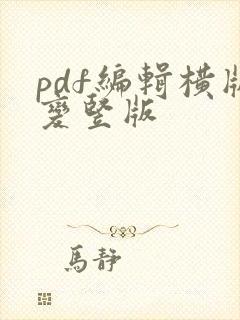 pdf編輯橫版
變竪版
馬靜